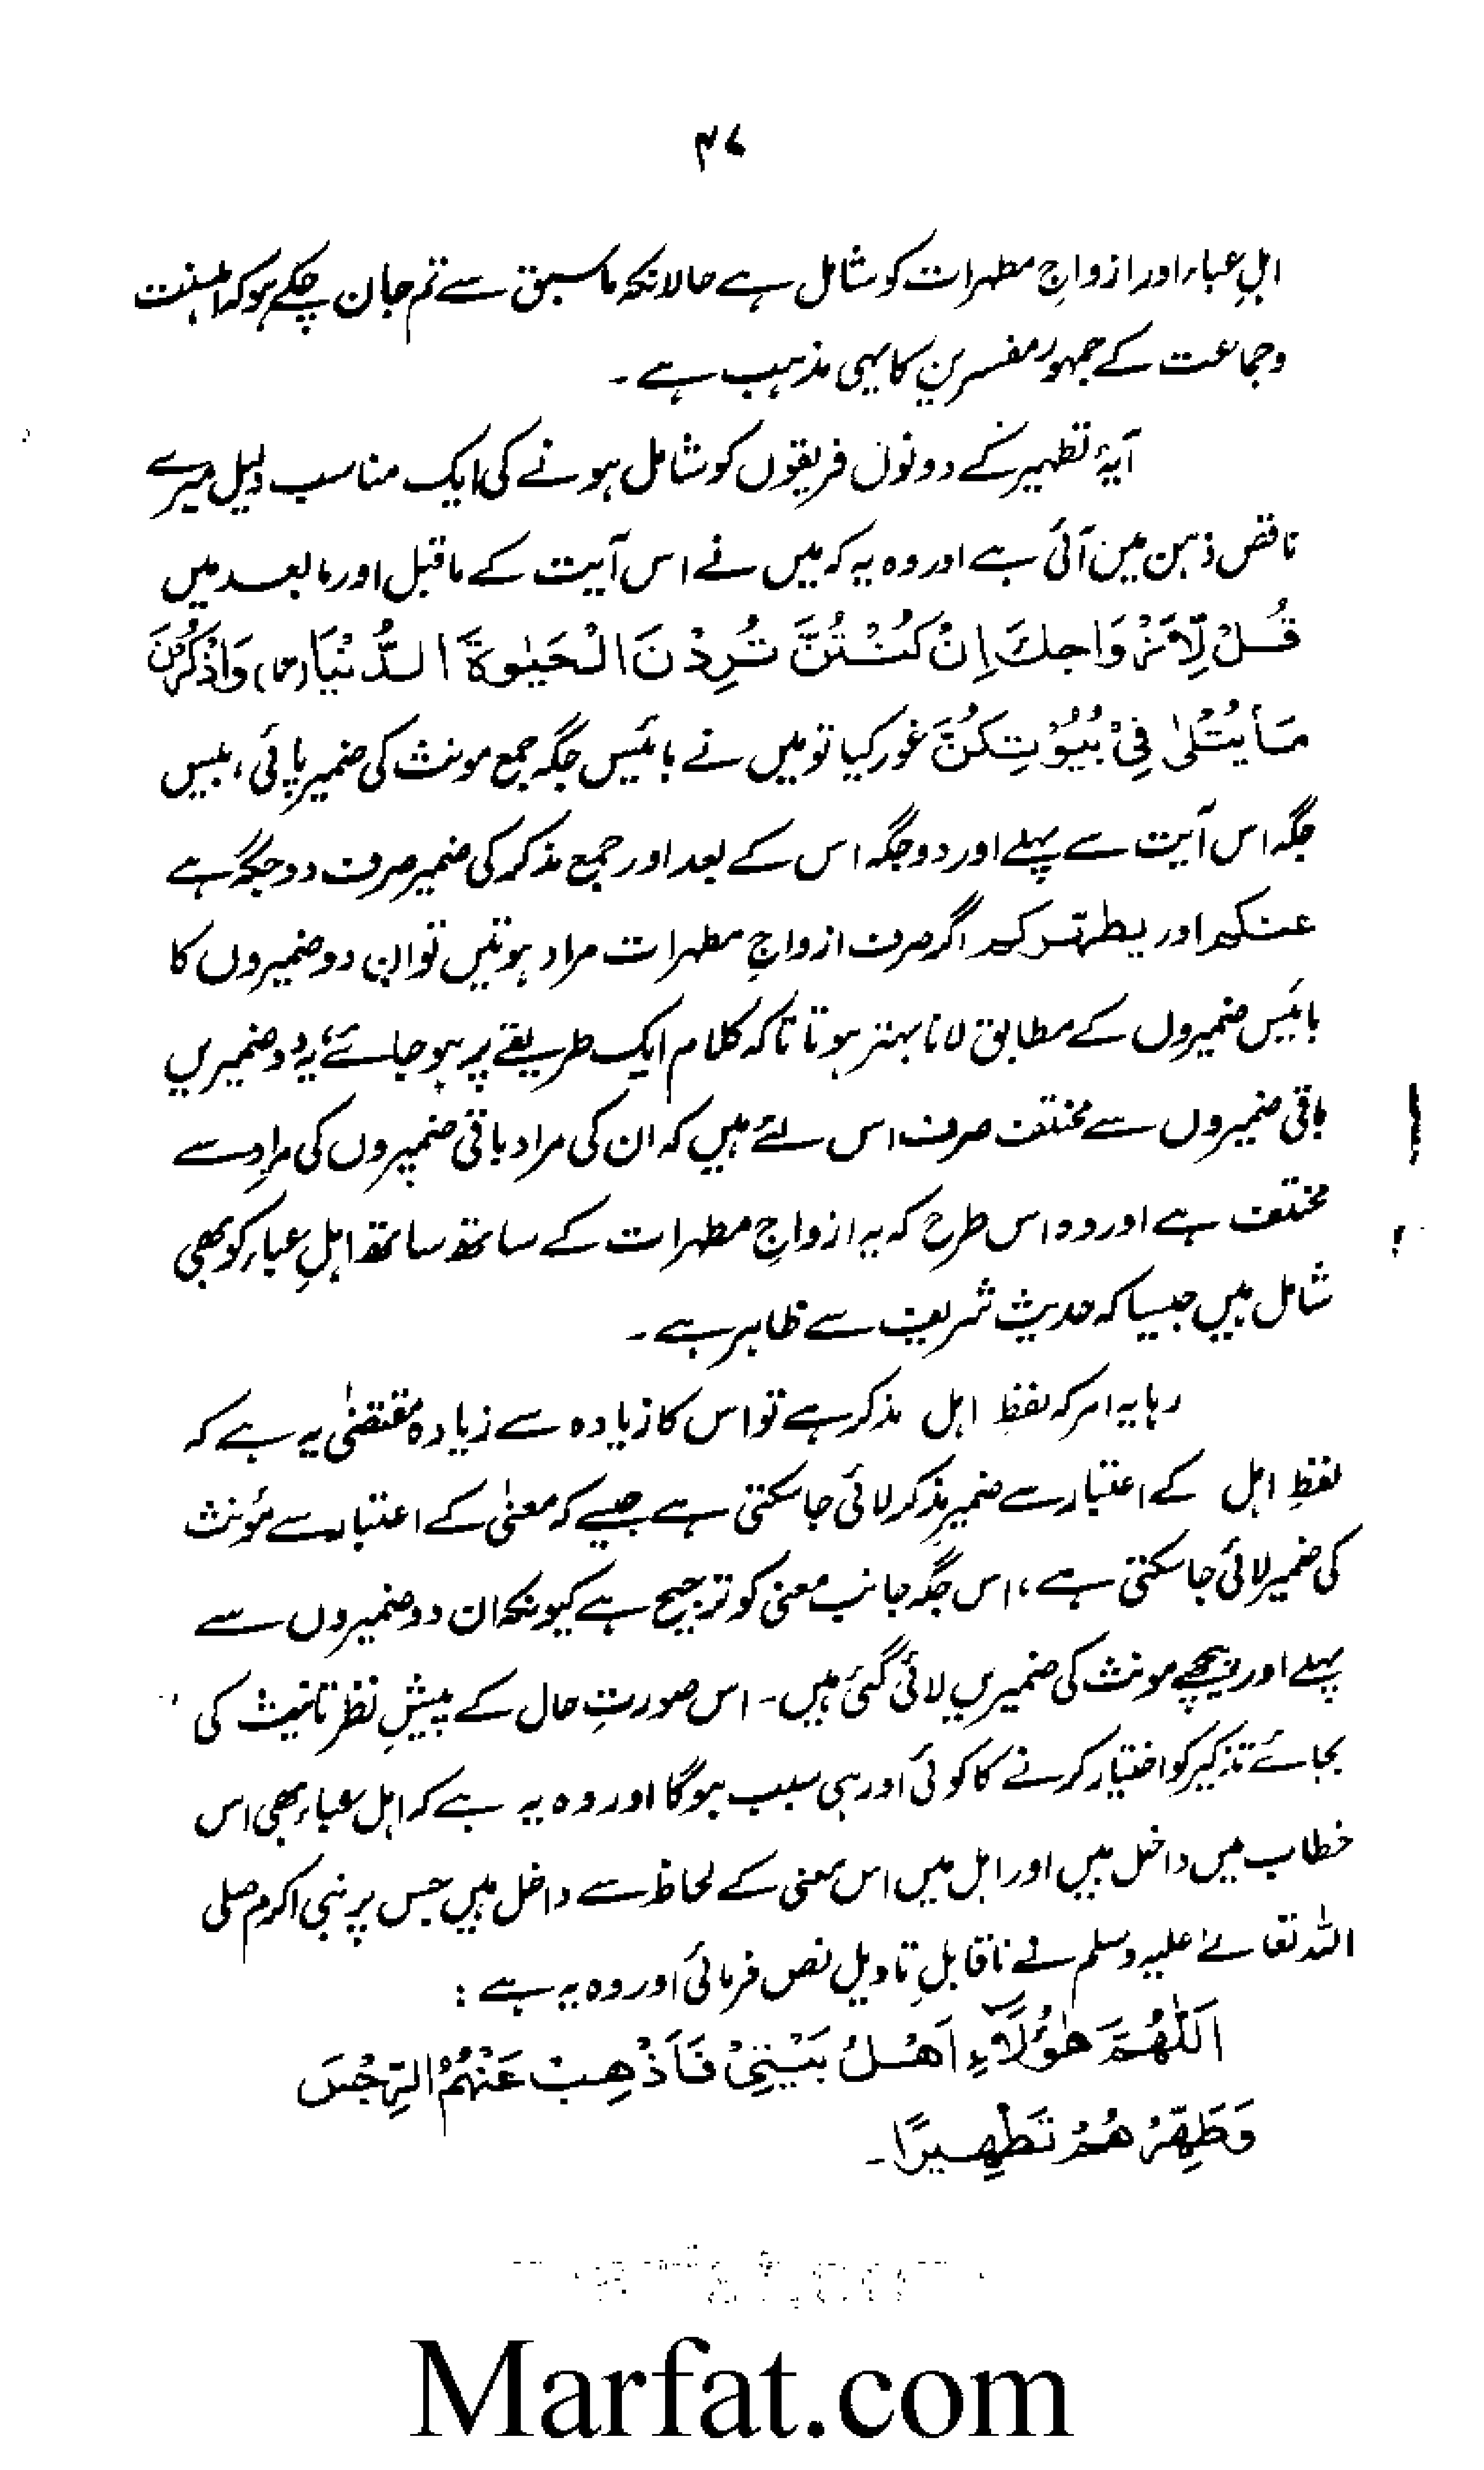 ۴۷
اہلِ عباء اور ازواجِ مطہرات کو شامل ہے حالانکہ ماسبق سے تم جان چکے ہو کہ اہلسنت
وجماعت کے جمہور مفسرین کا یہی مذہب ہے ۔
آیۂ تطہیر کے دونوں فریقوں کو شامل ہونے کی ایک مناسب دلیل میرے
ناقص ذہن میں آئی ہے اور وہ یہ کہ میں نے اس آیت کے ماقبل اور مابعد میں
قُلْ لِّاَزْوَاجِكَ اِنْ كُنْتُنَّ تُرِدْنَ الْحَيٰوةَ الدُّنْيَا (تا) وَاذْكُرْنَ
مَا يُتْلٰى فِىْ بُيُوْتِكُنَّ غور کیا تو میں نے بائیس جگہ جمع مونث کی ضمیر پائی، بیس
جگہ اس آیت سے پہلے اور دو جگہ اس کے بعد اور جمع مذکر کی ضمیر صرف دو جگہ ہے
عنکم اور یطہّرکم اگر صرف ازواجِ مطہرات مراد ہوتیں تو ان دو ضمیروں کا
بائیس ضمیروں کے مطابق لانا بہتر ہوتا تاکہ کلام ایک طریقے پر ہو جائے، یہ دو ضمیریں
باقی ضمیروں سے مختلف صرف اس لئے ہیں کہ ان کی مراد باقی ضمیروں کی مراد سے
مختلف ہے اور وہ اس طرح کہ یہ ازواجِ مطہرات کے ساتھ ساتھ اہلِ عباء کو بھی
شامل ہیں جیسا کہ حدیث شریف سے ظاہر ہے ۔
رہا یہ امر کہ لفظ اہل مذکر ہے تو اس کا زیادہ سے زیادہ مقتضیٰ یہ ہے کہ
لفظِ اہل کے اعتبار سے ضمیر مذکر لائی جا سکتی ہے جیسے کہ معنیٰ کے اعتبار سے مؤنث
کی ضمیر لائی جا سکتی ہے، اس جگہ جانبِ معنی کو ترجیح ہے کیونکہ ان دو ضمیروں سے
پہلے اور پیچھے مونث کی ضمیریں لائی گئی ہیں۔ اس صورتِ حال کے پیشِ نظر تانیث کی
بجائے تذکیر کو اختیار کرنے کا کوئی اور ہی سبب ہوگا اور وہ یہ ہے کہ اہل عباء بھی اس
خطاب میں داخل ہیں اور اہل میں اس معنی کے لحاظ سے داخل ہیں جس پر نبی اکرم صلی
اللہ تعالےٰ علیہ وسلم نے ناقابلِ تاویل نص فرمائی اور وہ یہ ہے :
اَللّٰهُمَّ هٰؤُلَآءِ اَهْلُ بَيْتِىْ فَاَذْهِبْ عَنْهُمُ الرِّجْسَ
وَطَهِّرْهُمْ تَطْهِيرًا۔
Marfat.com